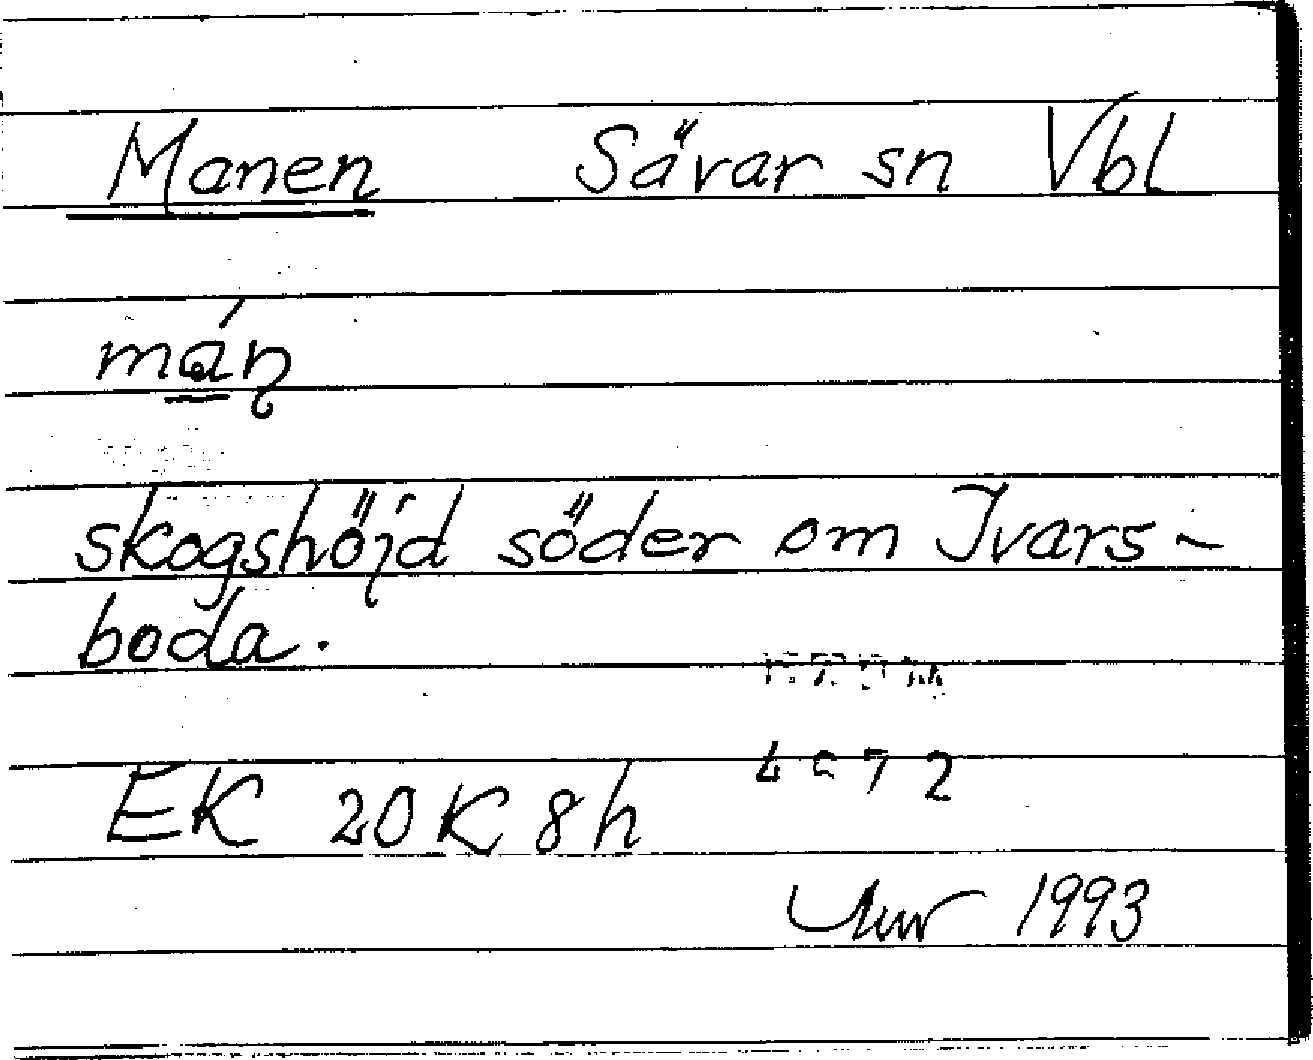 Manen Sävar sn Vbl
skogshöjd söder om Ivars-
boda.
EK 20K 8h
1993